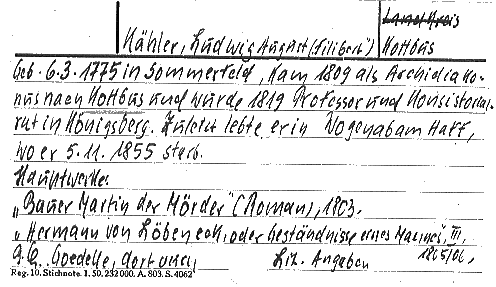 Landkreis
Kähler, Ludwig August (Filibert) Kottbus
Geb. 6.3.1775 in Sommerfeld, kam 1809 als Archidiako-
nus nach Kottbus und wurde 1819 Professor und Konsistorial-
rat in Königsberg. Zuletzt lebte er in Wogenab am Haff,
wo er 5.11.1855 starb.
Hauptwerke:
„Bauer Martin der Mörder" (Roman), 1803.
„Hermann von Löbeneck, oder Geständnisse eines Mannes", III,
1805/06.
Goedeke, dort auch Lit. Angaben
Reg. 10. Stichnote. 1. 50. 232 000. A. 803. S. 4062